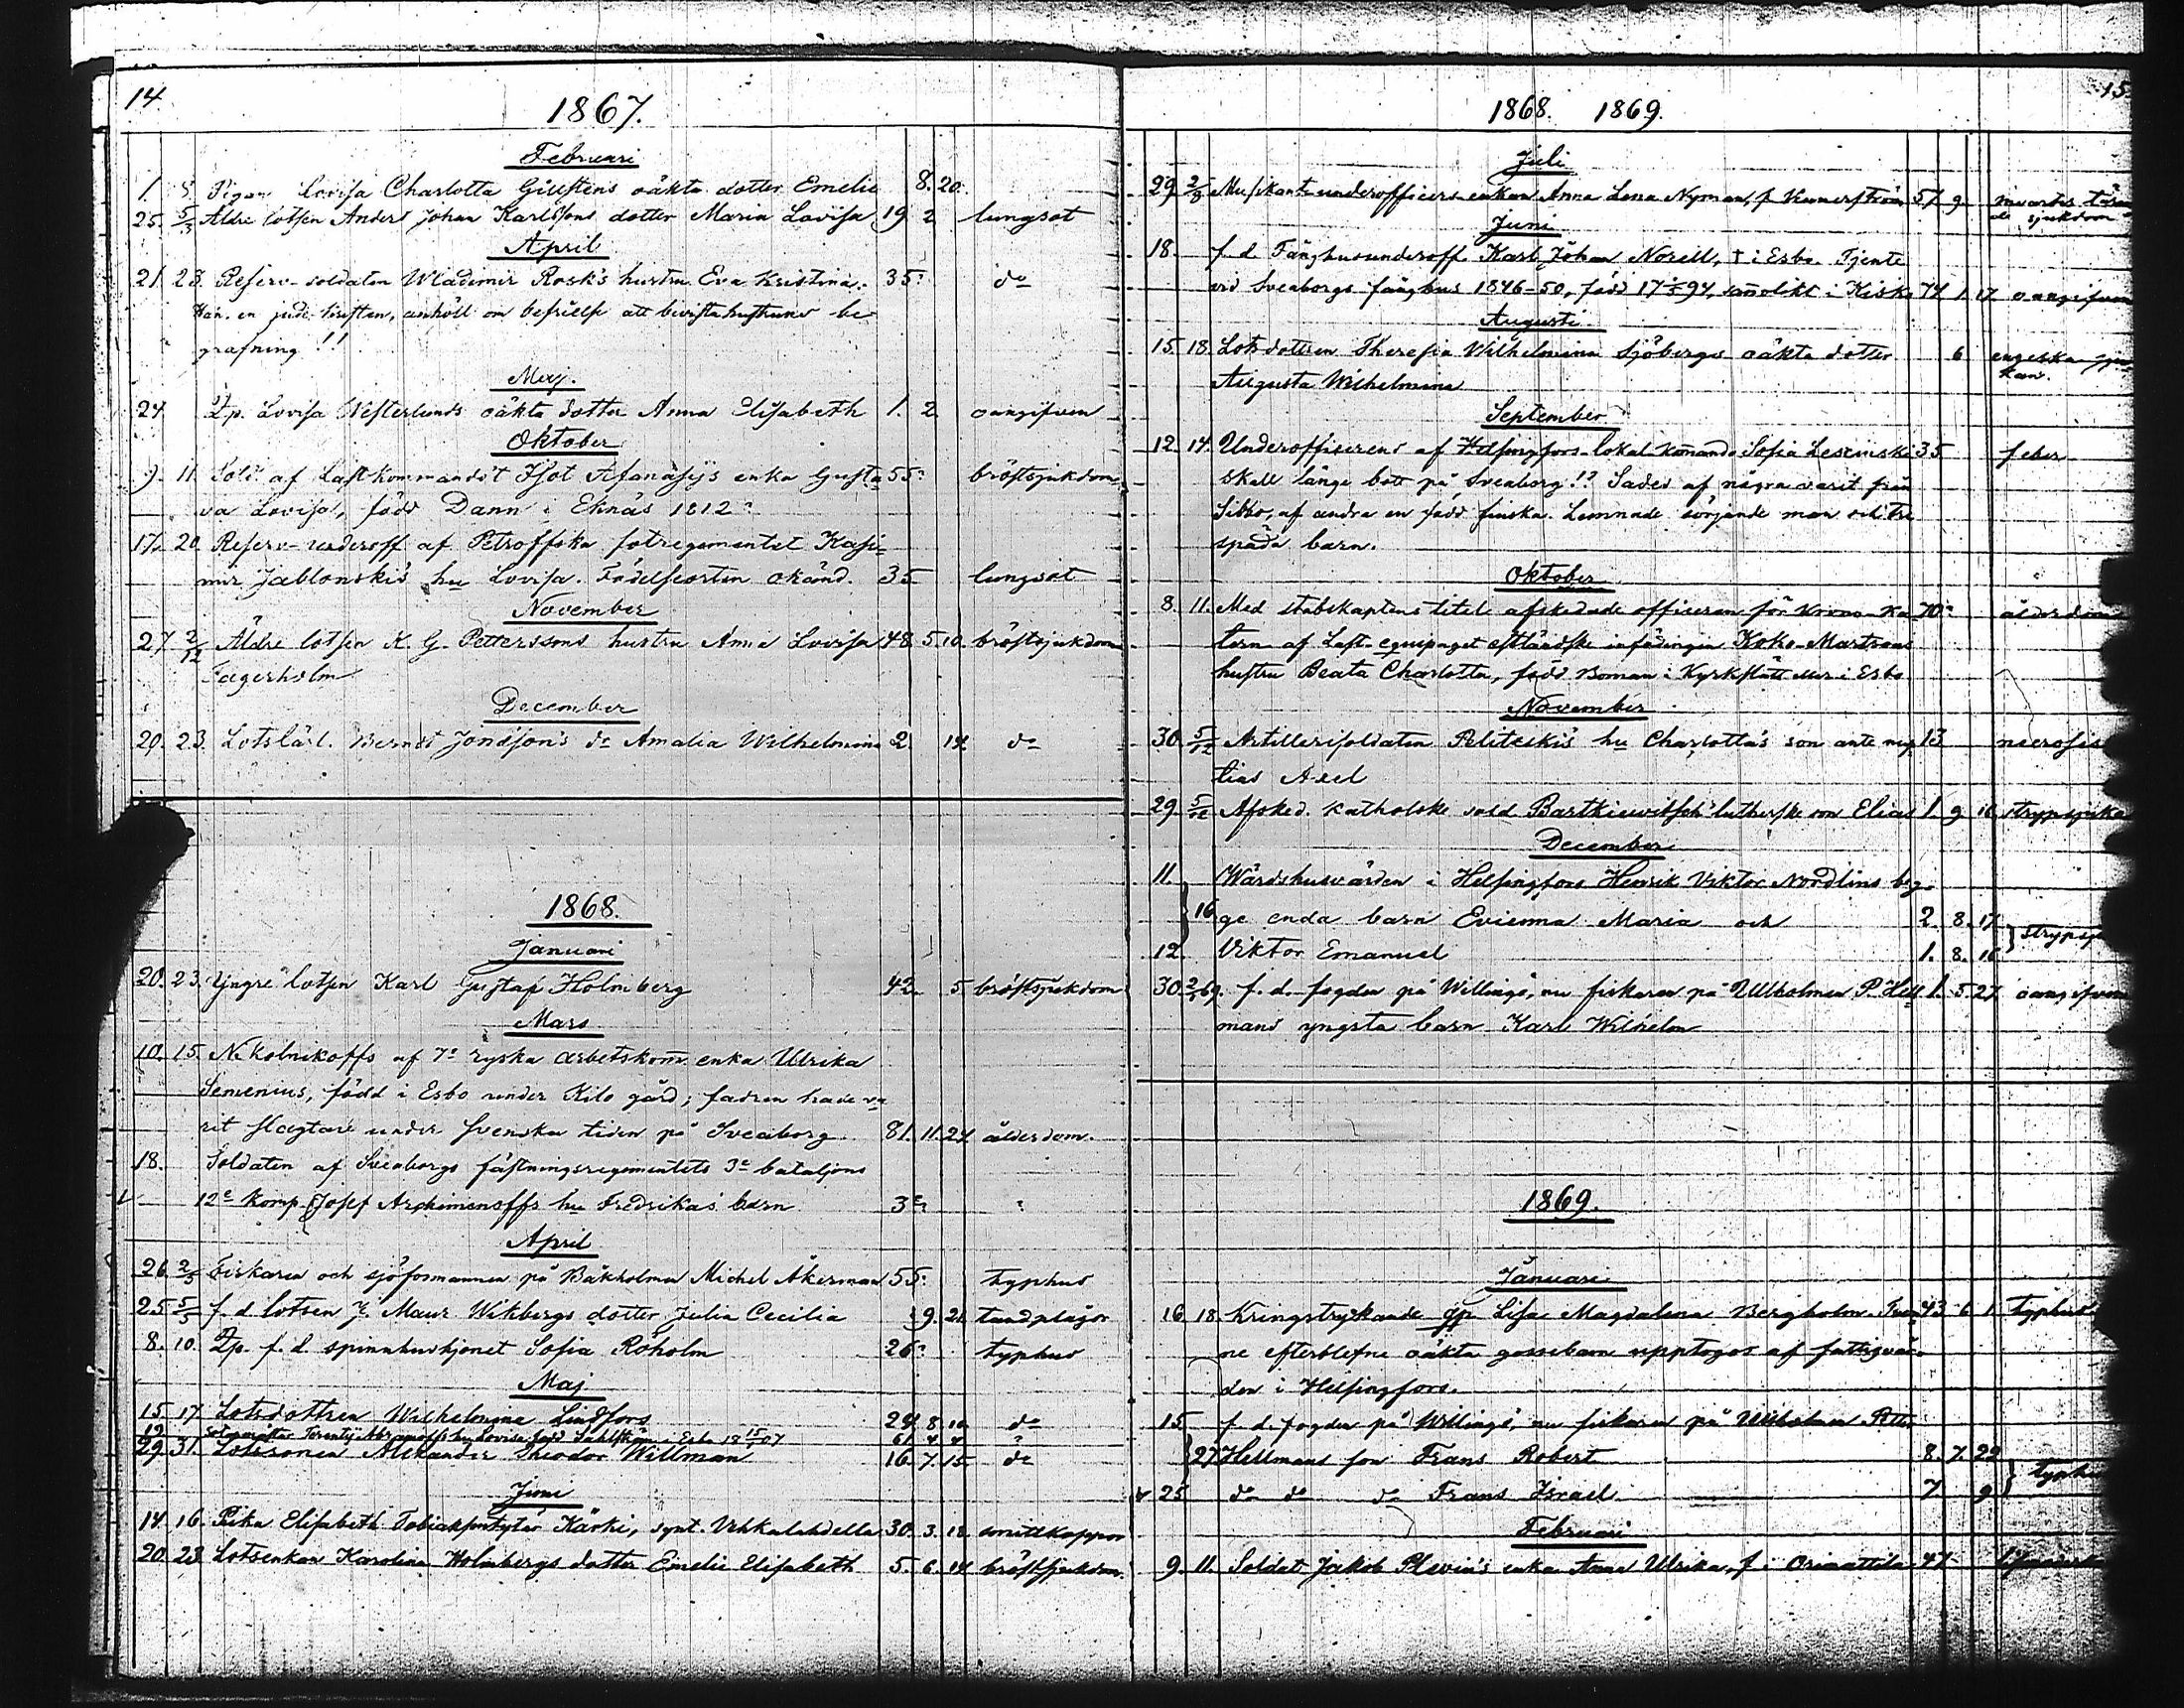 14
1867.
Februari
1. 5 Pigan Lovisa Charlotta Gillstens oäkta dotter Emelie 8. 20.
25. 5/3 Äldre lotsen Anders Johan Karlssons dotter Maria Lovisa 19 2 lungsot
April
21. 23. Reserv-soldaten Wladimir Rosk's hustru Eva Kristina. 35? do
Han, en jude, anhöll om att hustruns be-
grafning!!!
Maj.
24. Qp. Lovisa Westerlunds oäkta dotter Anna Elisabeth 1. 2. oangifven
Oktober
9. 11. Sold. af Afanasijs enka Gusta- 55? bröstsjukdom
va Lovisa, född Dann i Eknäs 1812?
17. 20. Reserv-underoff. af Petroffska fotregementet Kasi-
mir Jablonski's hu Lovisa. Födelseorten okänd. 35 lungsot
November
27. 2/12 Äldre lotsen K. G. Petterssons hustru Anna Lovisa 48. 5. 10. bröstsjukdom
Fagerholm
December
20. 23. Lotslärl. Berndt Jonsson's dr Amalia Wilhelmina 2. 14. do
1868.
Januari
20. 23. Yngre lotsen Karl Gustaf Holmberg 42 5 bröstsjukdom
Mars
10. 15. N. Kolnikoffs af 7e ryska arbetskom. enka Ulrika
Semenius, född i Esbo under Kilo gård; fadren hade va-
rit slagtare under svenska tiden på Sveaborg 81. 11. 24 ålderdom.
18. Soldaten af Sveaborgs fästningsregimentets 3e bataljons
12e komp. Josef Archimenoffs hu Fredrikas barn 3? ?
April
26. 2/5 Fiskaren och sjöformannen på Bakholmen Michel Åkerman 55? typhus
25. 5/5 f. d. lotsen J. Maur. Wikbergs dotter Julia Cecilia 9. 21 tandplågor
8. 10. Qp. f. d. spinnhushjonet Sofia Roholm 26? typhus
Maj
15 17. Lotsdottren Wilhelmina Lindfors 24. 8. 10 do
12 Terentij Abramoffs hu Lovisa född Sahlström i Esbo 18 15/1 07 61. 4 4 ?
29. 31. Lotssonen Alexander Theodor Willman 16. 7. 15 do
Juni
14. 16. Piika Elisabeth Tobiaksentytär Kärki, synt. Vehkalahdella 30. 3. 12 smittkoppor
20. 23. Lotsenkan Karolina Holmbergs dotter Emelie Elisabeth 5. 6. 14 bröstsjukdom.
15.
1868. 1869.
Juli
29. 2/8 Musikant-underofficers-enkan Anna Lena Nyman, f. 57 9 invärtes
sjukdom
Juni
18. f. d. Fånghusunderoff. Karl Johan Norell, † i Esbo. Tjente
vid Sveaborgs fånghus 1846-50, född 17 94, sannolikt i Kisko 74 1 17 oangifven
Augusti
15. 18. Lotsdottren Theresia Wilhelmina Sjöbergs oäkta dotter 6 engelska sju-
kan.
Augusta Wilhelmina
September
12. 14. Underofficerens af Helsingfors lokal kommando Sofia Lesinski 35 feber
Skall länge bott på Sveaborg!? Sades af några varit från
Sibbo, af andra en född finska. Lemnade sörjande man och tre
späda barn.
Oktober
8. 11. Med stabskaptens titel afskedade officeren för 70? ålderdom
af equipaget estländske infödingen Koho-Martsons
hustru Beata Charlotta, född Boman i Kyrkslätt eller i Esbo
November
30. 5/12 Artillerisoldaten Peliteski's hu Charlotta's son ante nup- 13 necrosis
tias Axel
29. 5/12 Afsked. katholske sold. Bartkiewitsch' lutherske son Elias 1. 9 16 strypsjuka
December
11. Wärdshusvärden i Helsingfors Henrik Viktor Nordlins beg-
16 ge enda barn Evienna Maria och 2. 8. 17 strypsj
12. Viktor Emanuel 1. 8. 16
30. 2/1 69. f. d. fogden på Willinge, nu fiskaren på Ullholmen P. Hell- 1. 5 27 oangifven
mans yngsta barn Karl Wilhelm
1869.
Januari
16 18. Kringstrykande qp. Lisa Magdalena Bergholm. Tven- 43 6 1 typhus
ne efterblefne oäkta gossebarn upptogos af fattigvår-
den i Helsingfors.
15. f. d. fogden på Willinge, nu fiskaren på Ullholmen Pett.
27 Hellmans son Frans Robert 8. 7. 22 typhus
25 do do do Frans Israel 7 9
Februari
9. 11. Soldat. Jakob Plevin's enka Anna Ulrika, f. i Orimattila 47